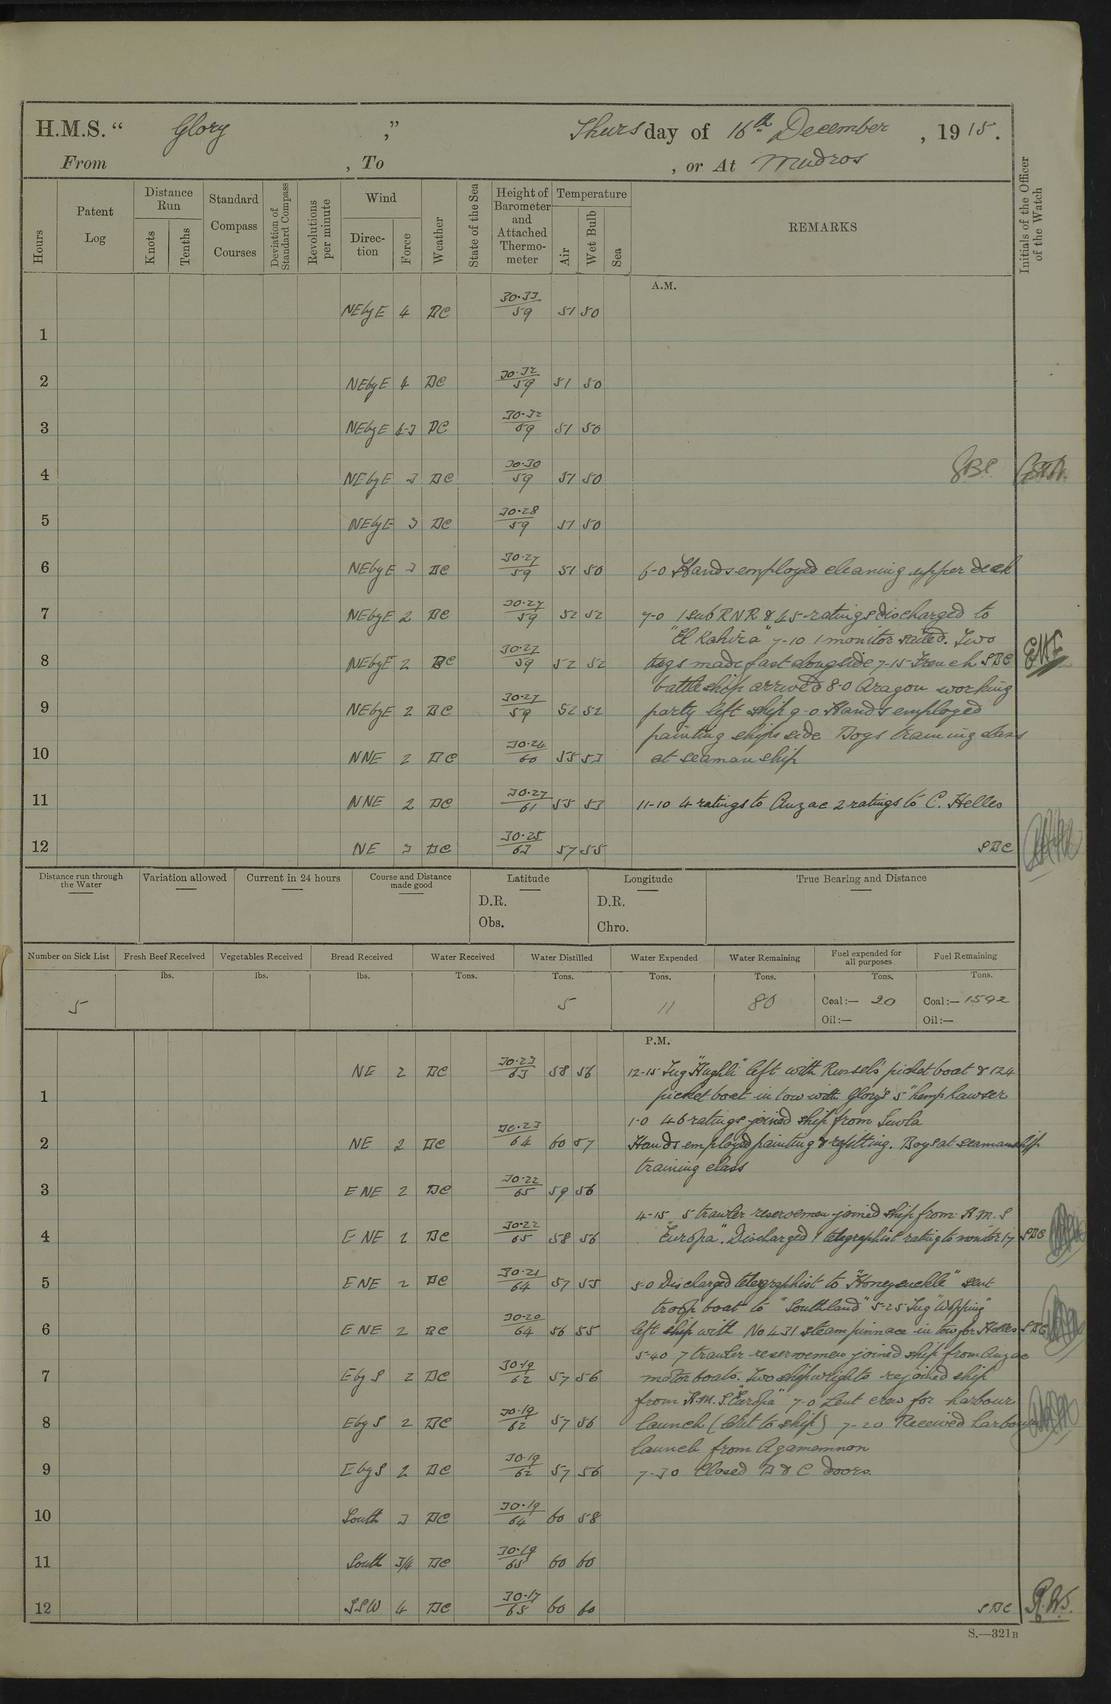 H.M.S. “ Glory ,” Thursday of 16th December, 1915.
From , To , or At Mudros
Hours
Patent Log
Distance Run
Knots
Tenths
Standard Compass Courses
Deviation of Standard Compass
Revolutions per minute
Wind
Direction
Force
Weather
State of the Sea
Height of Barometer and Attached Thermometer
Temperature
Air
Wet Bulb
Sea
REMARKS
Initials of the Officer of the Watch
A.M.
1 NEbyE 4 BC 30.33/59 51 50
2 NEbyE 4 BC 30.32/59 51 50
3 NEbyE 4-3 BC 30.32/59 51 50
4 NEbyE 3 BC 30.30/59 51 50
5 NEbyE 3 BC 30.28/59 51 50
6 NEbyE 3 BC 30.27/59 51 50 6-0 Hands employed cleaning upper deck
7 NEbyE 2 BC 30.27/59 52 52 7-0 1 Sub RNR & 45 ratings discharged to
"El Kahira" 7-10 1 monitor sailed. Two
8 NEbyE 2 BC 30.27/59 52 52 tugs made fast alongside 7-15 French
battleship arrived 8-0 Aragon working
9 NEbyE 2 BC 30.27/59 52 52 party left ship 9-0 Hands employed
painting ships side Boys training class
10 NNE 2 BC 30.26/60 55 53 at seamanship
11 NNE 2 BC 30.27/61 55 53 11-10 4 ratings to Anzac 2 ratings to C. Helles
12 NE 3 BC 30.25/63 57 55
Distance run through the Water
Variation allowed
Current in 24 hours
Course and Distance made good
Latitude
D.R.
Obs.
Longitude
D.R.
Chro.
True Bearing and Distance
Number on Sick List
Fresh Beef Received
Vegetables Received
Bread Received
Water Received
Water Distilled
Water Expended
Water Remaining
Fuel expended for all purposes
Fuel Remaining
lbs. lbs. lbs. Tons. Tons. Tons. Tons. Tons. Tons.
5 5 11 80 Coal:— 20 Coal:— 1592
Oil:— Oil:—
P.M.
1 NE 2 BC 30.23/63 58 56 12-15 Tug "Hughli" left with Russel's picket boat & 124
picket boat in tow with Glory's 5" hemp hawser
1-0 46 ratings joined ship from Suvla
2 NE 2 BC 30.23/64 60 57 Hands employed painting & refitting. Boys at seamanship
training class
3 ENE 2 BC 30.22/65 59 56
4-15 5 trawler reservemen joined ship from H.M.S
4 ENE 2 BC 30.22/65 58 56 "Europa". Discharged 1 telegraphist rating to monitor 17
5 ENE 2 BC 30.21/64 57 55 5-0 Discharged telegraphist to "Honeysuckle" sent
troop boat to "Southland" 5-25 Tug "Wapping"
6 ENE 2 BC 30.20/64 56 55 left ship with No 431 steam pinnace in tow for Helles
5-40 7 trawler reservemen joined ship from Anzac
7 EbyS 2 BC 30.19/62 57 56 motor boats. Two shipwrights rejoined ship
from H.M.S. "Europa" 7-0 Lent crew for harbour
8 EbyS 2 BC 30.19/62 57 56 launch (lent to ship) 7-20 Received harbour
launch from Agamemnon
9 EbyS 2 BC 30.19/62 57 56 7-30 Closed B & C doors.
10 South 3 BC 30.19/64 60 58
11 South 3/4 BC 30.19/65 60 60
12 SSW 4 BC 30.17/65 60 60
S.—321B